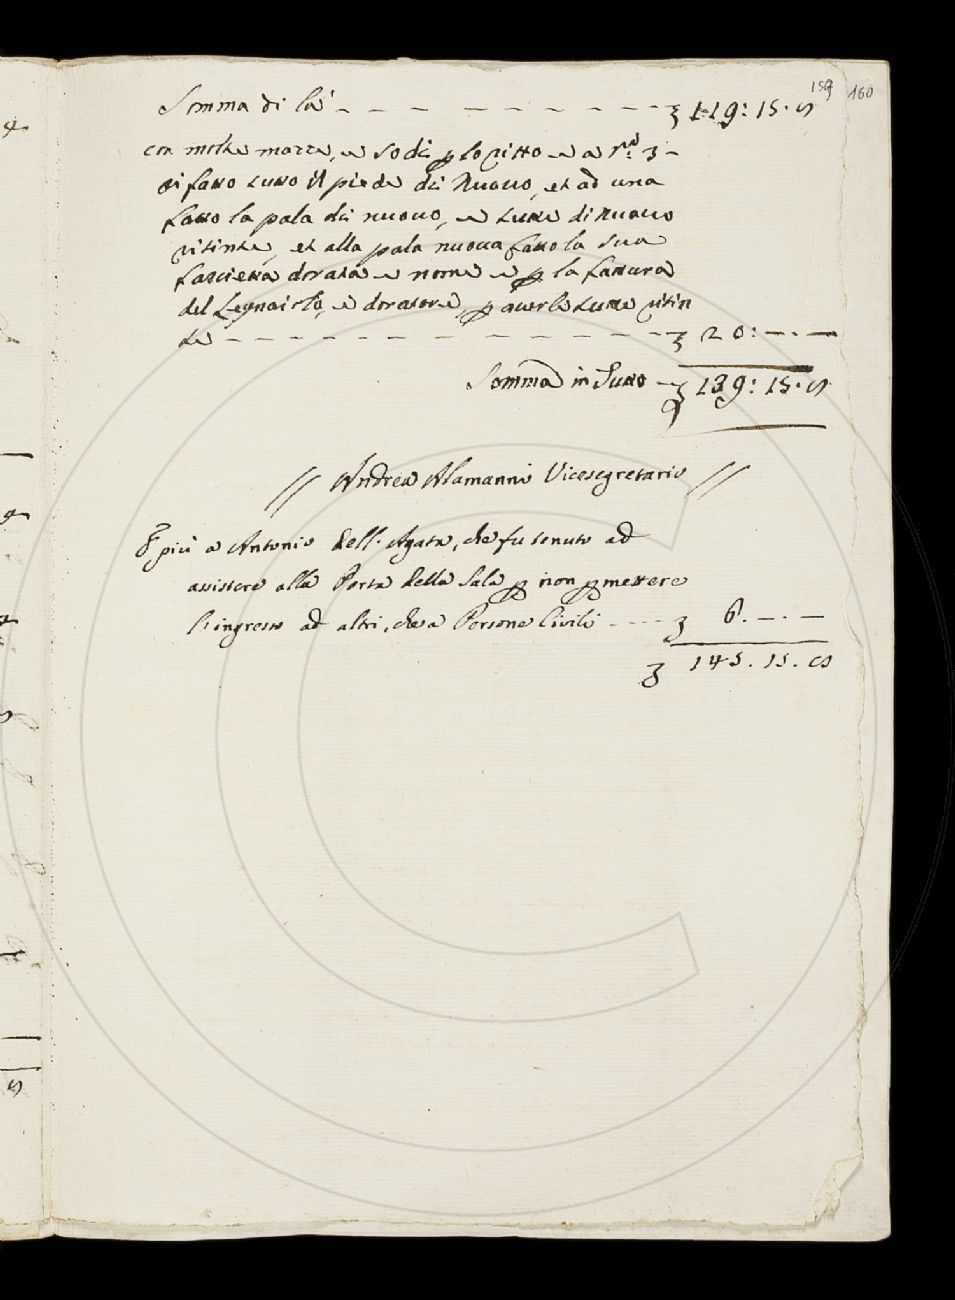 159 160
Somma di là - - - - - - - - - - 119: 15. 5
con molte mazze, e sodi p lo ritto e a n.º 3 -
si fatto tutto il piede di Nuovo, et ad una
fatto la pala di nuovo, e tutte di Nuovo
ritinte, et alla pala nuova fatto la sua
fascietta dorata e nome e p la fattura
del Legnaiolo, e doratore, p averle tutte ritin
te - - - - - - - - - - - - 20: —.—
Somma in Tutto - 139: 15. 5
// Andrea Alamanni Vicesegretario //
E più a Antonio dell. Agata, che fu tenuto ad
assistere alla Porta della Sala p non pmettere
l'ingresso ad altri, che a Persone Civili - - - - 6. —.—
145. 15. 5